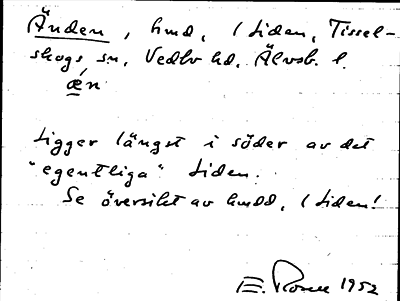 Änden, hmd, (Liden, Tissel-
skogs sn, Vedbo hd. Älvsb. l.
ǽn
Ligger längst i söder av det
"egentliga" Liden.
Se översikt av hmdd, (Liden!
E. Rosell 1952